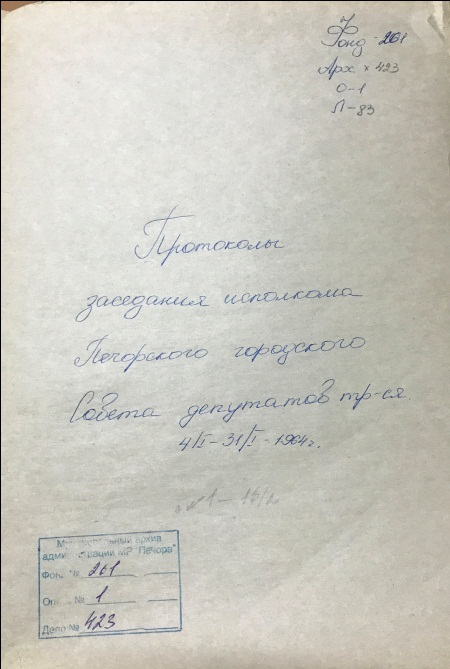 Фонд - 261
Арх × 423
О-1
Л-83
Протоколы
заседания исполкома
Печорского городского
Совета депутатов тр-ся.
4/I - 31/I - 1964 г.
Муниципальный архив
администрации МР "Печора"
Фонд № 261
Опись № 1
Дело № 423